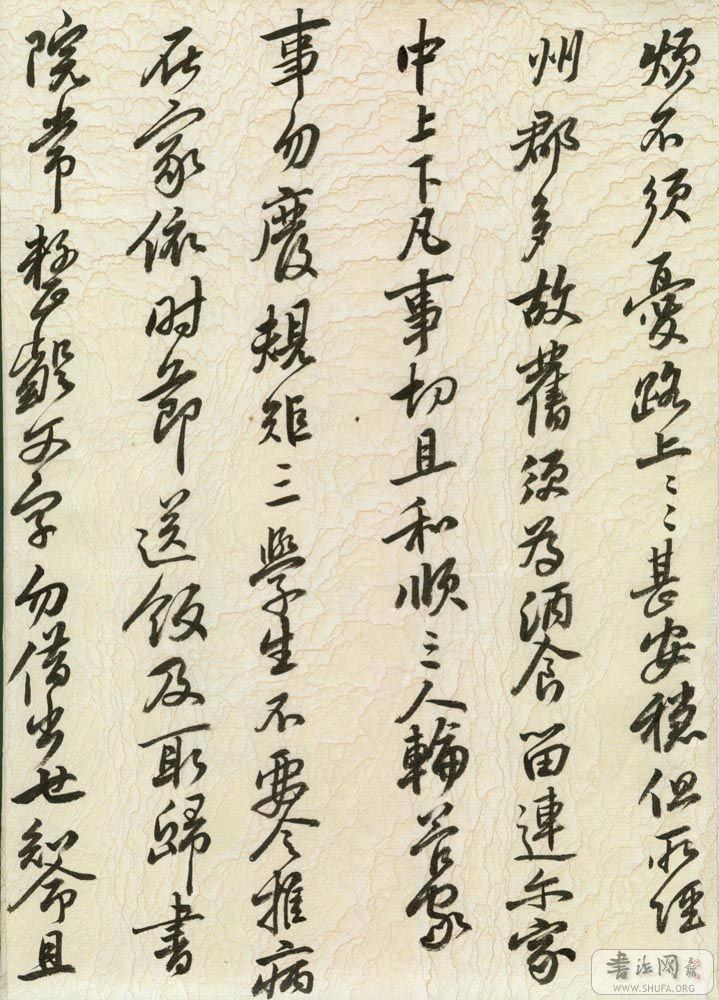 煩不須憂路上〻〻甚安穩但所經
州郡多故舊須為酒食留連尓家
中上下凡事切且和順三人輪管家
事勿廢規矩三學生不要令推病
在家依時節送飯及取歸書
院常整齪文字勿借出也知命且
书法网
WWW.SHUFA.ORG